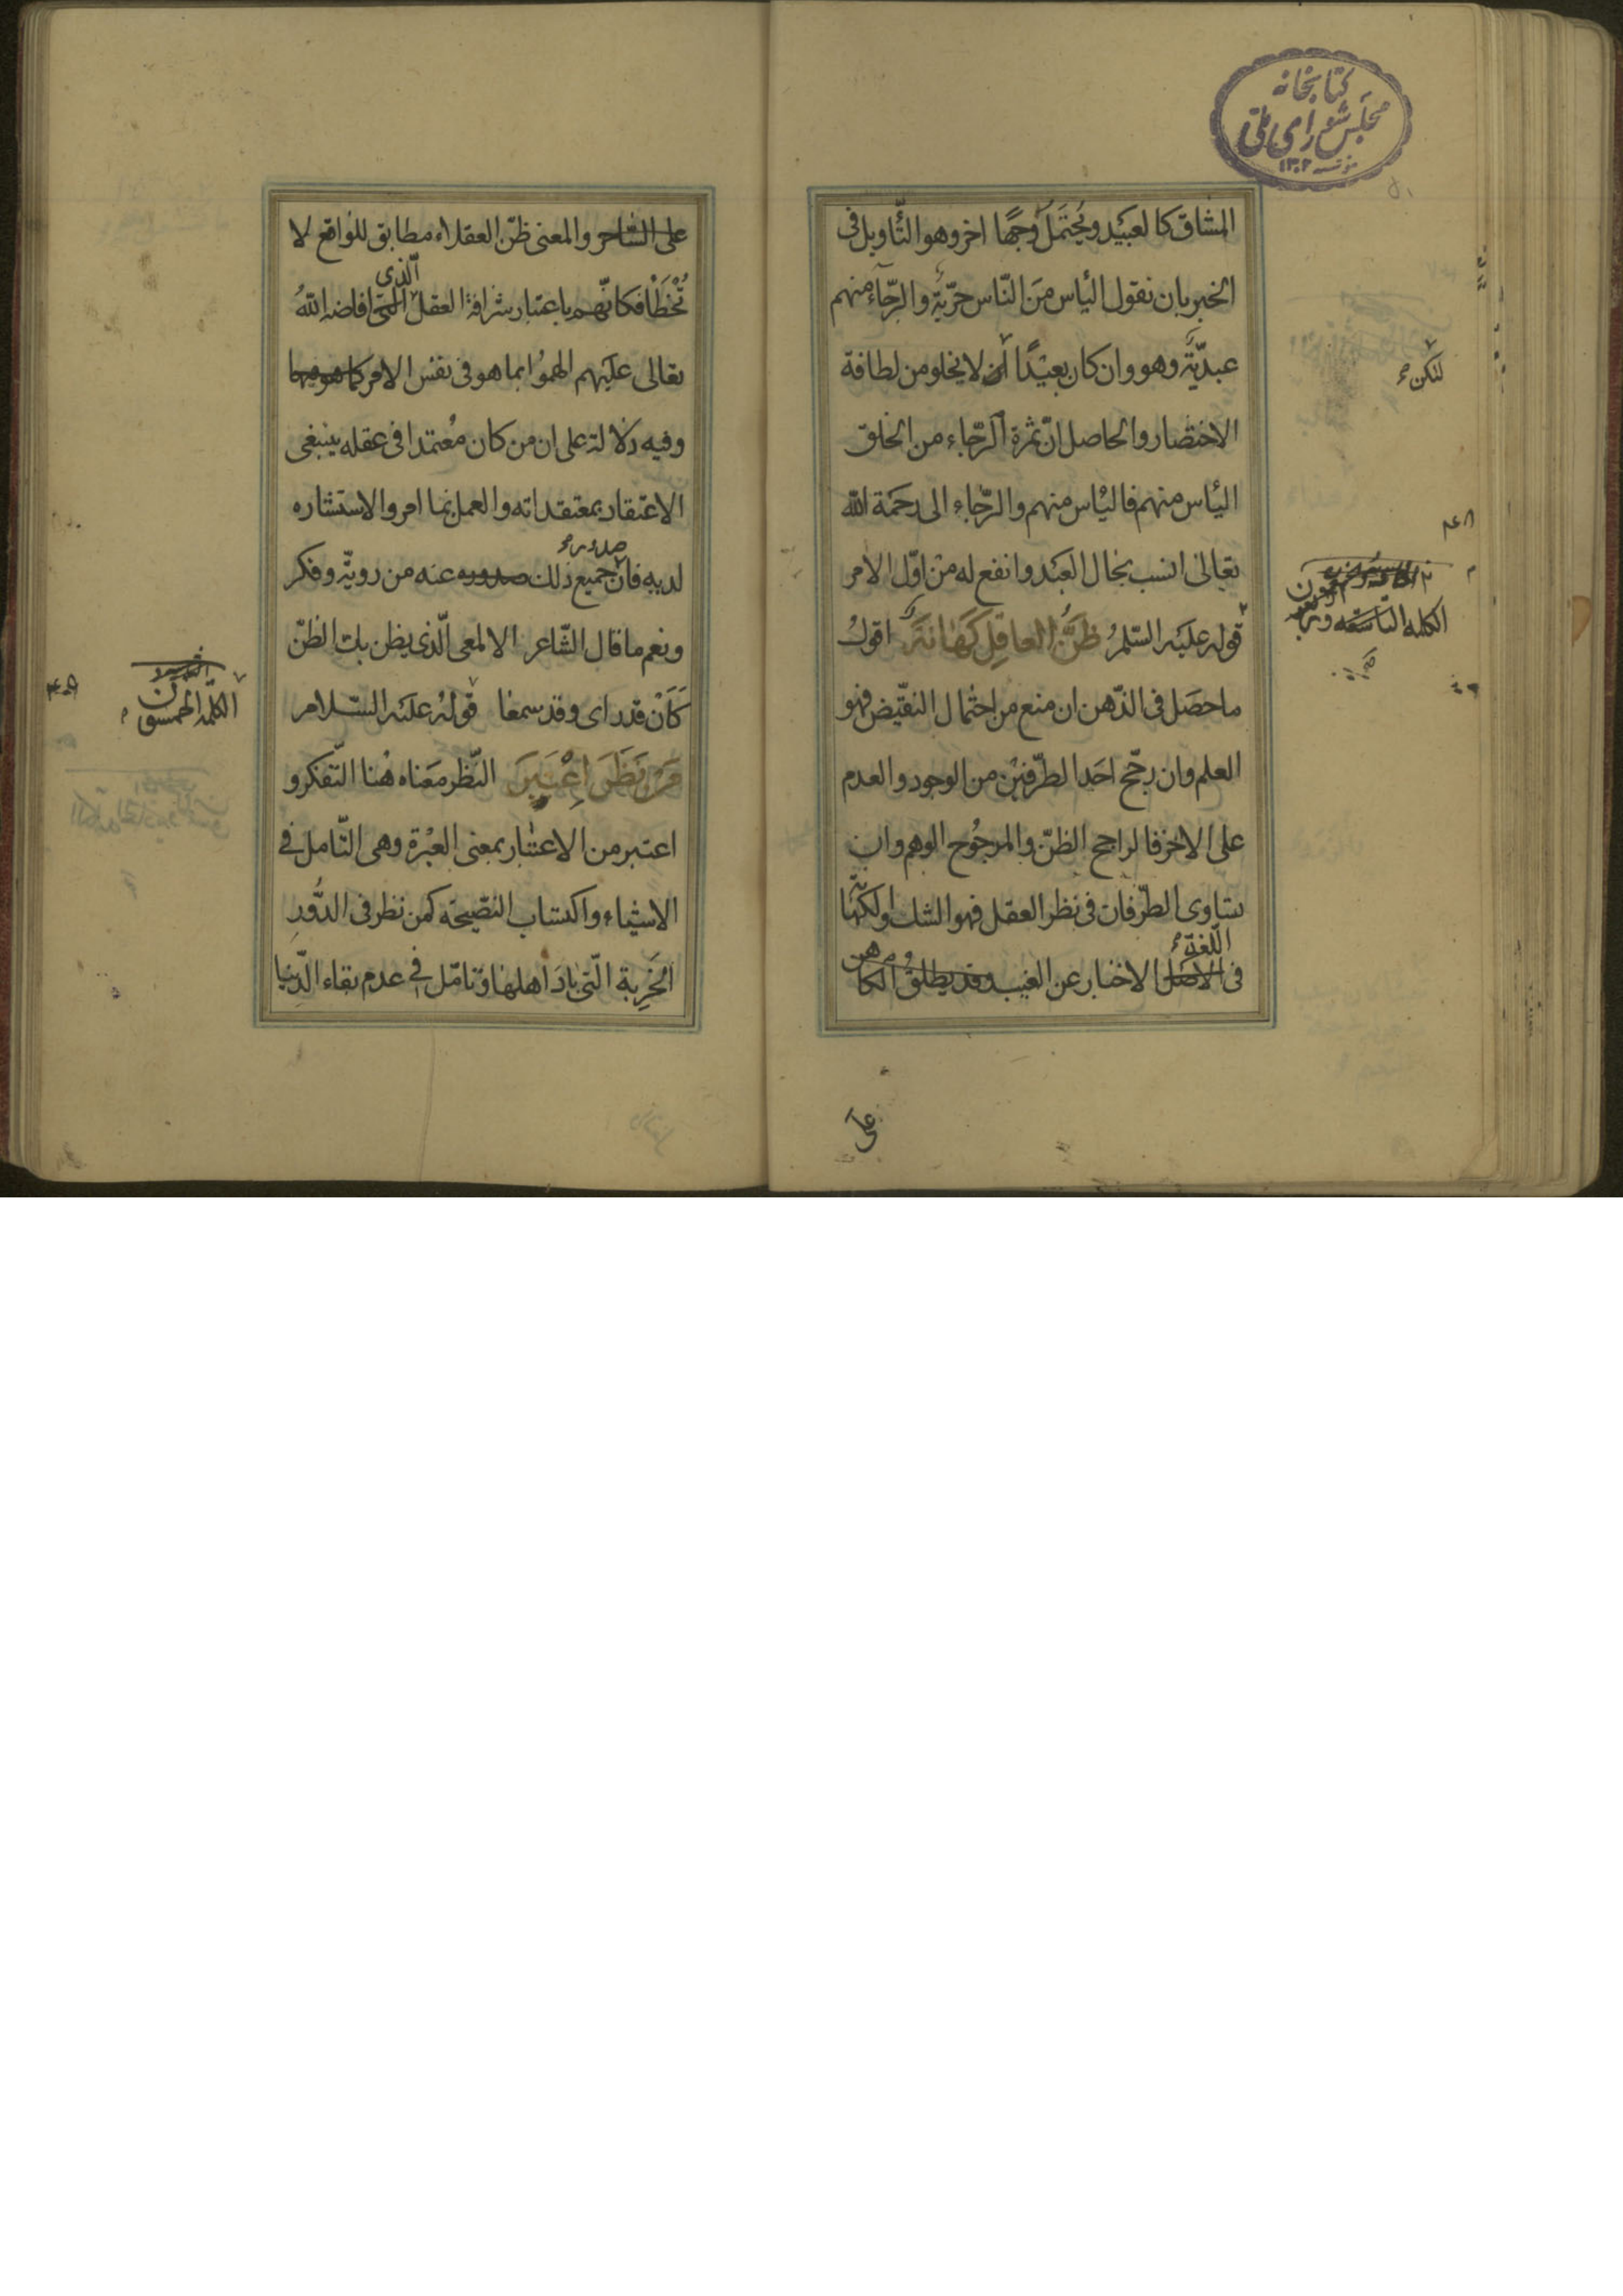 كتابخانه
مجلس شورای ملی
مؤسسه ۱۳۰۲
المشاق كالعبيد ويحتمل وجها اخر وهو التّأويل فی
الخبر بان نقول اليأس من النّاس حرّية والرّجاء منهم
عبديّة وهو وان كان بعيدًا لا يخلو من لطافة
لكن
الاختصار والحاصل انّ ثمرة الرّجاء من الخلق
اليأس منهم فاليأس منهم والرّجاء الى رحمة الله
تعالى انسب بحال العبد وانفع له من اوّل الامر
الكلمة التاسعة
قوله عليه السّلم ظَنُّ العاقِلِ كَهانَةٌ اقولُ
ما حصل فی الذّهن ان منع من احتمال النقيض فهو
العلم وان رجّح احد الطرفين من الوجود والعدم
على الاخر فالراجح الظنّ والمرجوح الوهم وان
تساوى الطرفان فی نظر العقل فهو الشك والكهانة
اللّغة
فی الاصل الاخبار عن الغيب وقد يطلق الكاهن
على
على السّاحر والمعنى ظنّ العقلاء مطابق للواقع لا
الّذی
تُخطَأ فكانّهم باعتبار شرافة العقل الّتی افاضه اللّهُ
تعالى عليهم الهموا بما هو فی نفس الامر كما هو فيها
وفيه دلالة على ان من كان معتمدا فی عقله ينبغی
الاعتقاد بمعتقداته والعمل بما امر والاستشاره
صدر
لديه فان جميع ذلك صدوره عنه من رويّة وفكر
ونعم ما قال الشّاعر الالمعی الّذی يظن بك الظنّ
كَاَنْ قد رای وقد سمعا قوله عليه السّلام
الكلمة الخمسون
مَن نَظَرَ اعْتَبَرَ النّظر معناه هنا التّفكر و
اعتبر من الاعتبار بمعنى العبرة وهی التّامل فی
الاشياء واكتساب النصيحة كمن نظر فی الدُّور
الخَرِبة الّتی بادَ اهلها وتامّل فی عدم بقاء الدّنيا